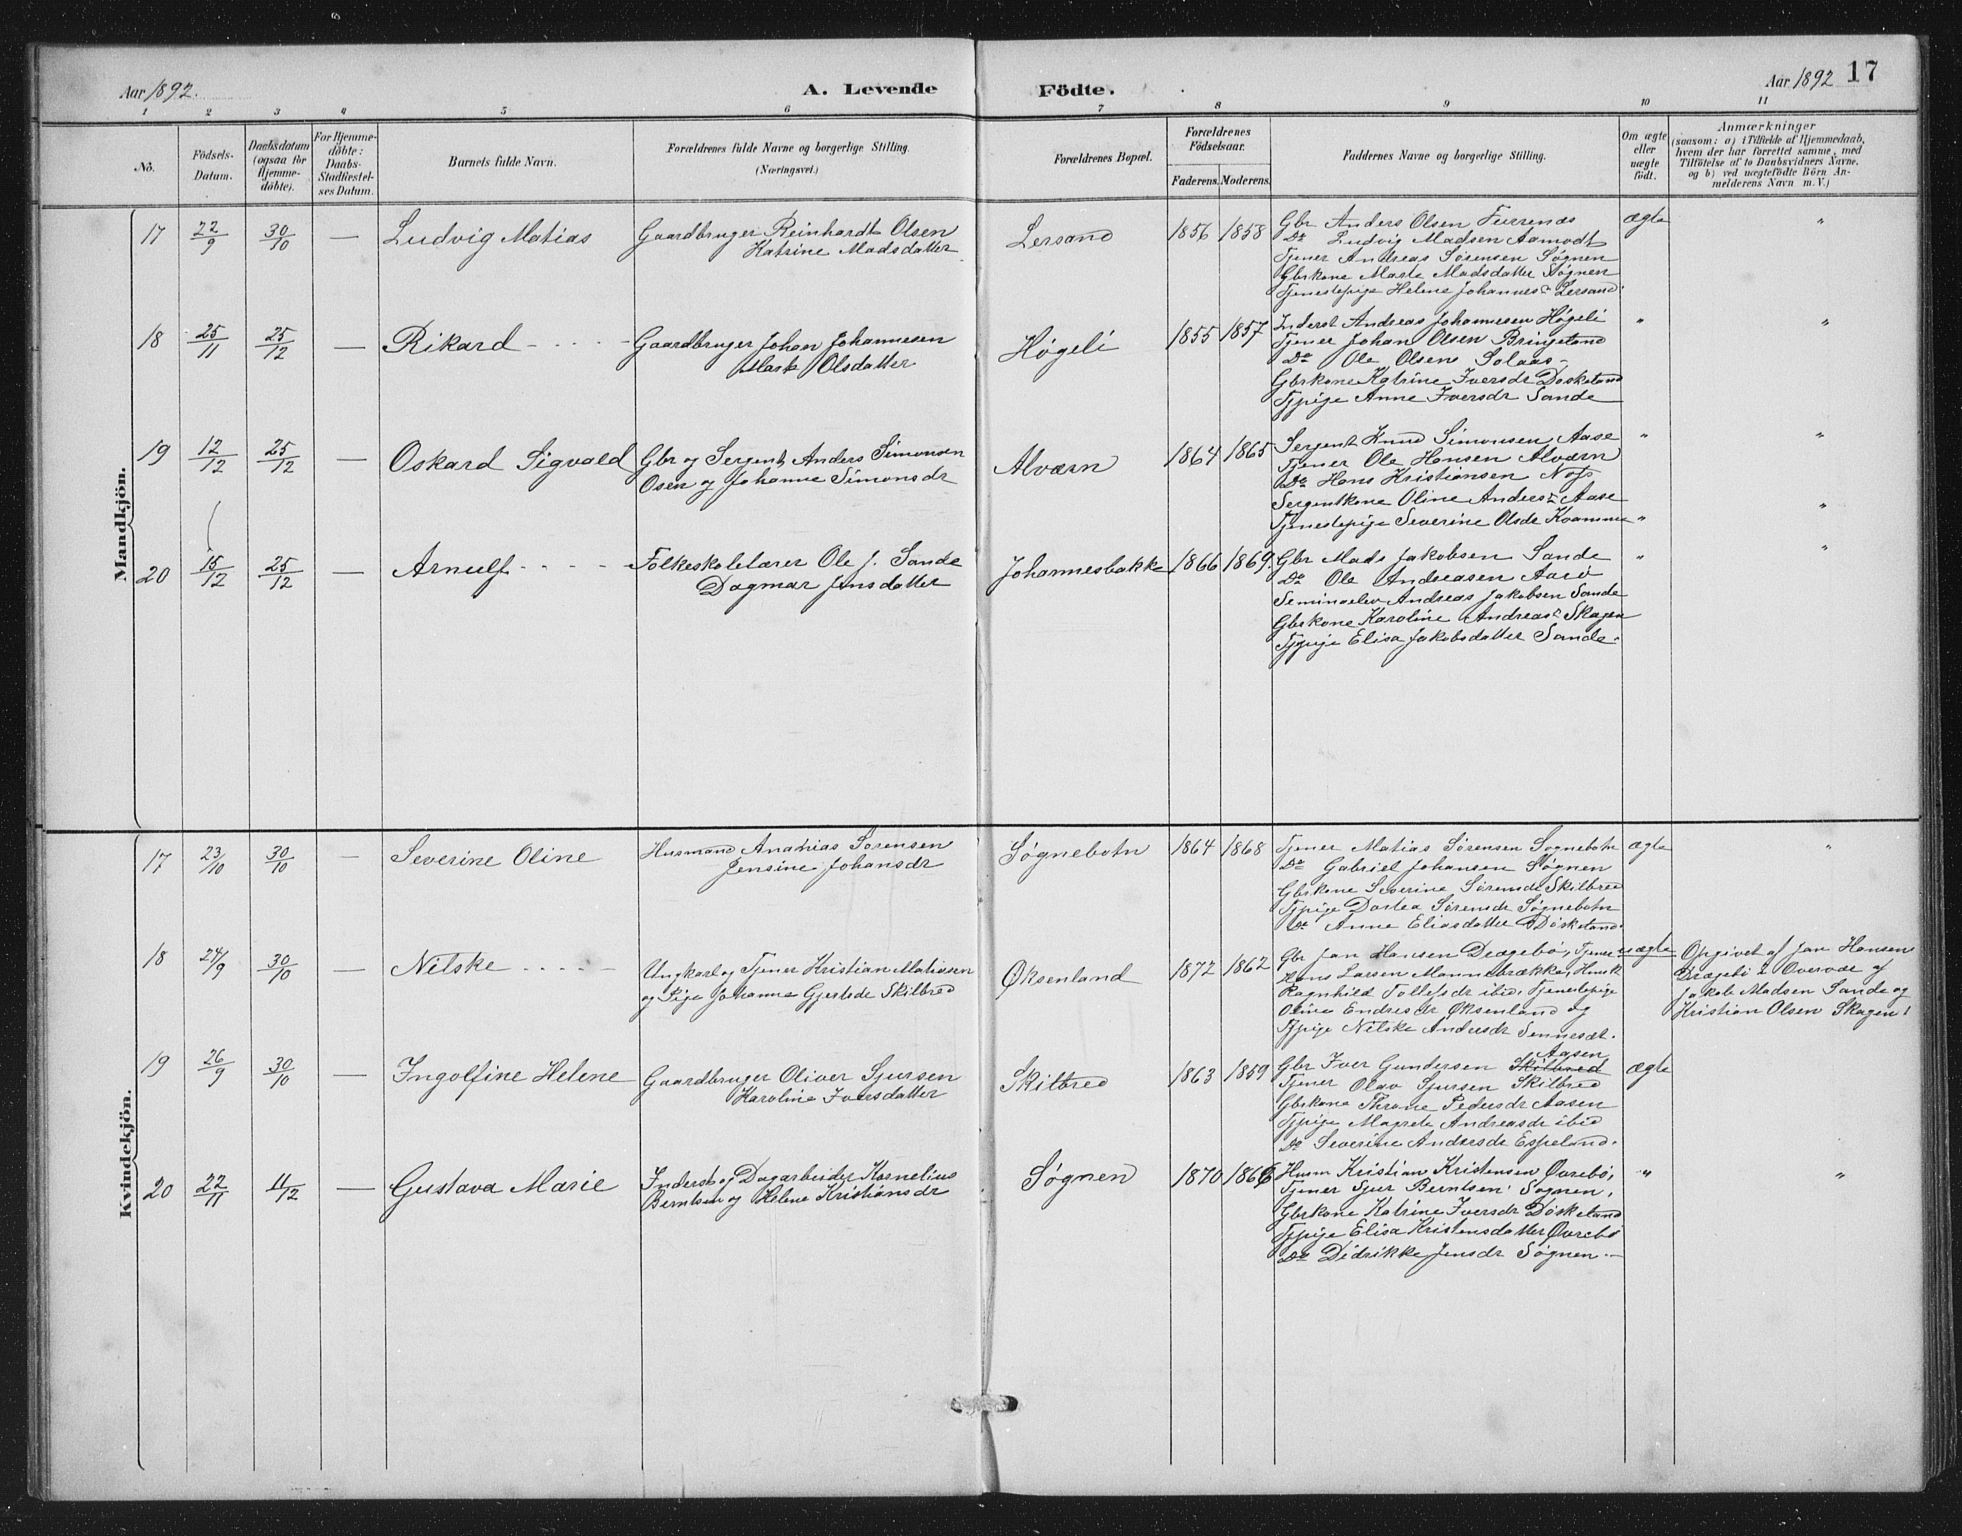 Aar 1892.
A. Levende Födte.
Aar 1892 17
1 2 3 4 5 6 7 8 9 10 11
No.
Födsels-
Datum.
Daabsdatum
(ogsaa for
Hjemme-
döbte).
For Hjemme-
döbte:
Daabs-
Stadfæstel-
ses Datum.
Barnets fulde Navn.
Forældrenes fulde Navne og borgerlige Stilling.
(Næringsvei.)
Forældrenes Bopæl.
Forældrenes
Födselsaar.
Faderens. Moderens.
Faddernes Navne og borgerlige Stilling.
Om ægte
eller
uægte
födt.
Anmærkninger
(saasom: a) i Tilfælde af Hjemmedaab,
hvem der har forrettet samme, med
Tilföielse af to Daabsvidners Navne,
og b) ved uægtefödte Börn An-
melderens Navn m. V.)
Mandkjön.
17 22/9 30/10 — Ludvig Matias
Gaardbruger Reinhardt Olsen
Katrine Madsdatter
Lersand 1856 1858
Gbr Anders Olsen Furrenæs
Do Ludvig Madsen Aamodt
Tjener Andreas Sørensen Søgnen
Gbrkone Marte Madsdatter Søgnen
Tjenestepige Helene Johannesdr Lersand.
ægte "
18 25/11 25/12 — Rikard
Gaardbruger Johan Johannesen
Marte Olsdatter
Høgeli 1855 1857
Inderst Andreas Johannesen Høgeli
Tjener Johan Olsen Bringeland
Do Ole Olsen Solaas
Gbrkone Katrine Iversdr Døskeland
Tjpige Anne Iversdr Sande
" "
19 12/12 25/12 — Oskard Sigvald
Gbr og Sergent Anders Simonsen
Osen og Johanne Simonsdr
Alværn 1864 1865
Sergent Knud Simonsen Aase
Tjener Ole Hansen Alværn
Do Hans Kristiansen
Sergentkone Oline Andersdr Aase
Tjenestepige Severine Olsdr Kvamme
" "
20 15/12 25/12 — Arnulf
Folkeskolelærer Ole J. Sande
Dagmar Jensdatter
Johannesbakke 1866 1869.
Gbr Mads Jakobsen Sande
Do Ole Andreasen Aarø
Seminaelev Andreas Jakobsen Sande
Gbrkone Karoline Andreasdr Skagen
Tjpige Elisa Jakobsdatter Sande.
" "
Kvindekjön.
17 23/10 30/10 — Severine Oline
Husmand Ananias Sørensen
Jensine Johansdr
Søgnebotn 1864 1868
Tjener Matias Sørensen Søgnebotn
Do Gabriel Johansen Søgnen
Gbrkone Severine Sørensdr Skilbred
Tjpige Dortea Sørensdr Søgnebotn
Do Anne Eliasdatter Døskeland
ægte "
18 24/9 30/10 — Nilske
Ungkarl og Tjener Kristian Matiasen
og Pige Johanne Gjertsdr Skilbred
Øksenland 1872 1862
Gbr Jan Hansen Drægebø, Tjener
Hans Larsen Mannebrække, Huusk
Ragnhild Tollefsdr ibid. Tjenestepige
Oline Endresdr Øksenland og
Tjpige Nilske Andersdr Sennesæt.
uægte
Opgivet af Jan Hansen
Drægebø i Overvær af
Jakob Madsen Sande og
Kristian Olsen Skagen!
19 26/9 30/10 — Ingolfine Helene
Gaardbruger Oliver Sjursen
Karoline Iversdatter
Skilbred 1863 1859
Aasen
Gbr Iver Gundersen Skilbred
Tjener Olav Sjursen Skilbred
Gbrkone Throne Pedersdr Aasen
Tjpige Magrete Andreasdr ibid
Do Severine Andersdr Espeland.
ægte
20 22/11 11/12 — Gustava Marie
Inderst og Dagarbeider Kornelius
Berntsen og Helene Kristiansdr
Søgnen 1870 1866
Husm Kristian Kristensen Øvrebø,
Tjener Sjur Berntsen Søgnen,
Gbrkone Katrine Iversdr Døskeland
Tjpige Elisa Kristensdatter Øvrebø
Do Didrikke Jensdr Søgnen.
" "